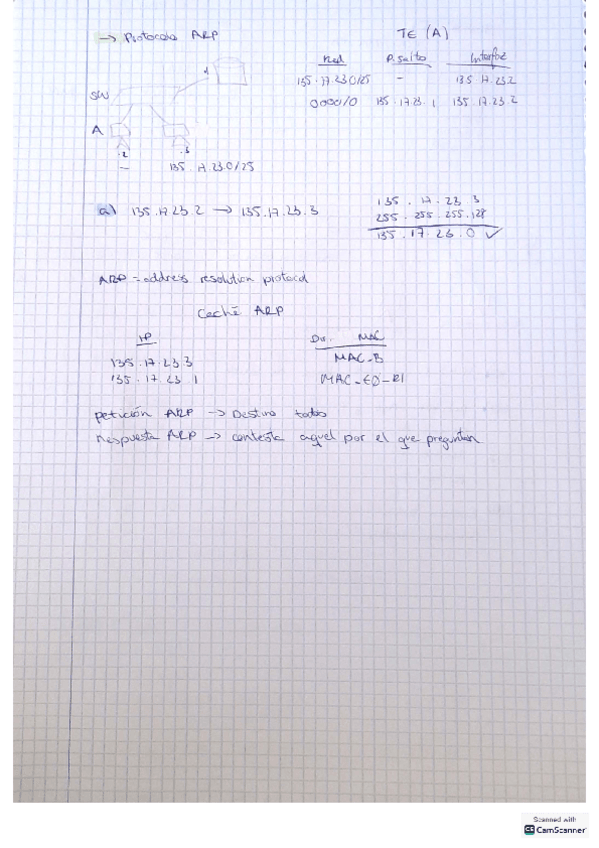 → Protocolo ARP
TE (A)
Red P. salto Interfaz
135.17.23.0/25 - 135.17.23.2
0.0.0.0/0 135.17.23.1 135.17.23.2
.1
SW
A
.2 .3
135.17.23.0/25
a) 135.17.23.2 → 135.17.23.3
135.17.23.3
255.255.255.128
135.17.23.0 ✓
ARP = address resolution protocol
Caché ARP
IP Dir. MAC
135.17.23.3 MAC-B
135.17.23.1 MAC-E0-R1
petición ARP → Destino todos
Respuesta ARP → contesta aquel por el que preguntan
Scanned with
CS CamScanner